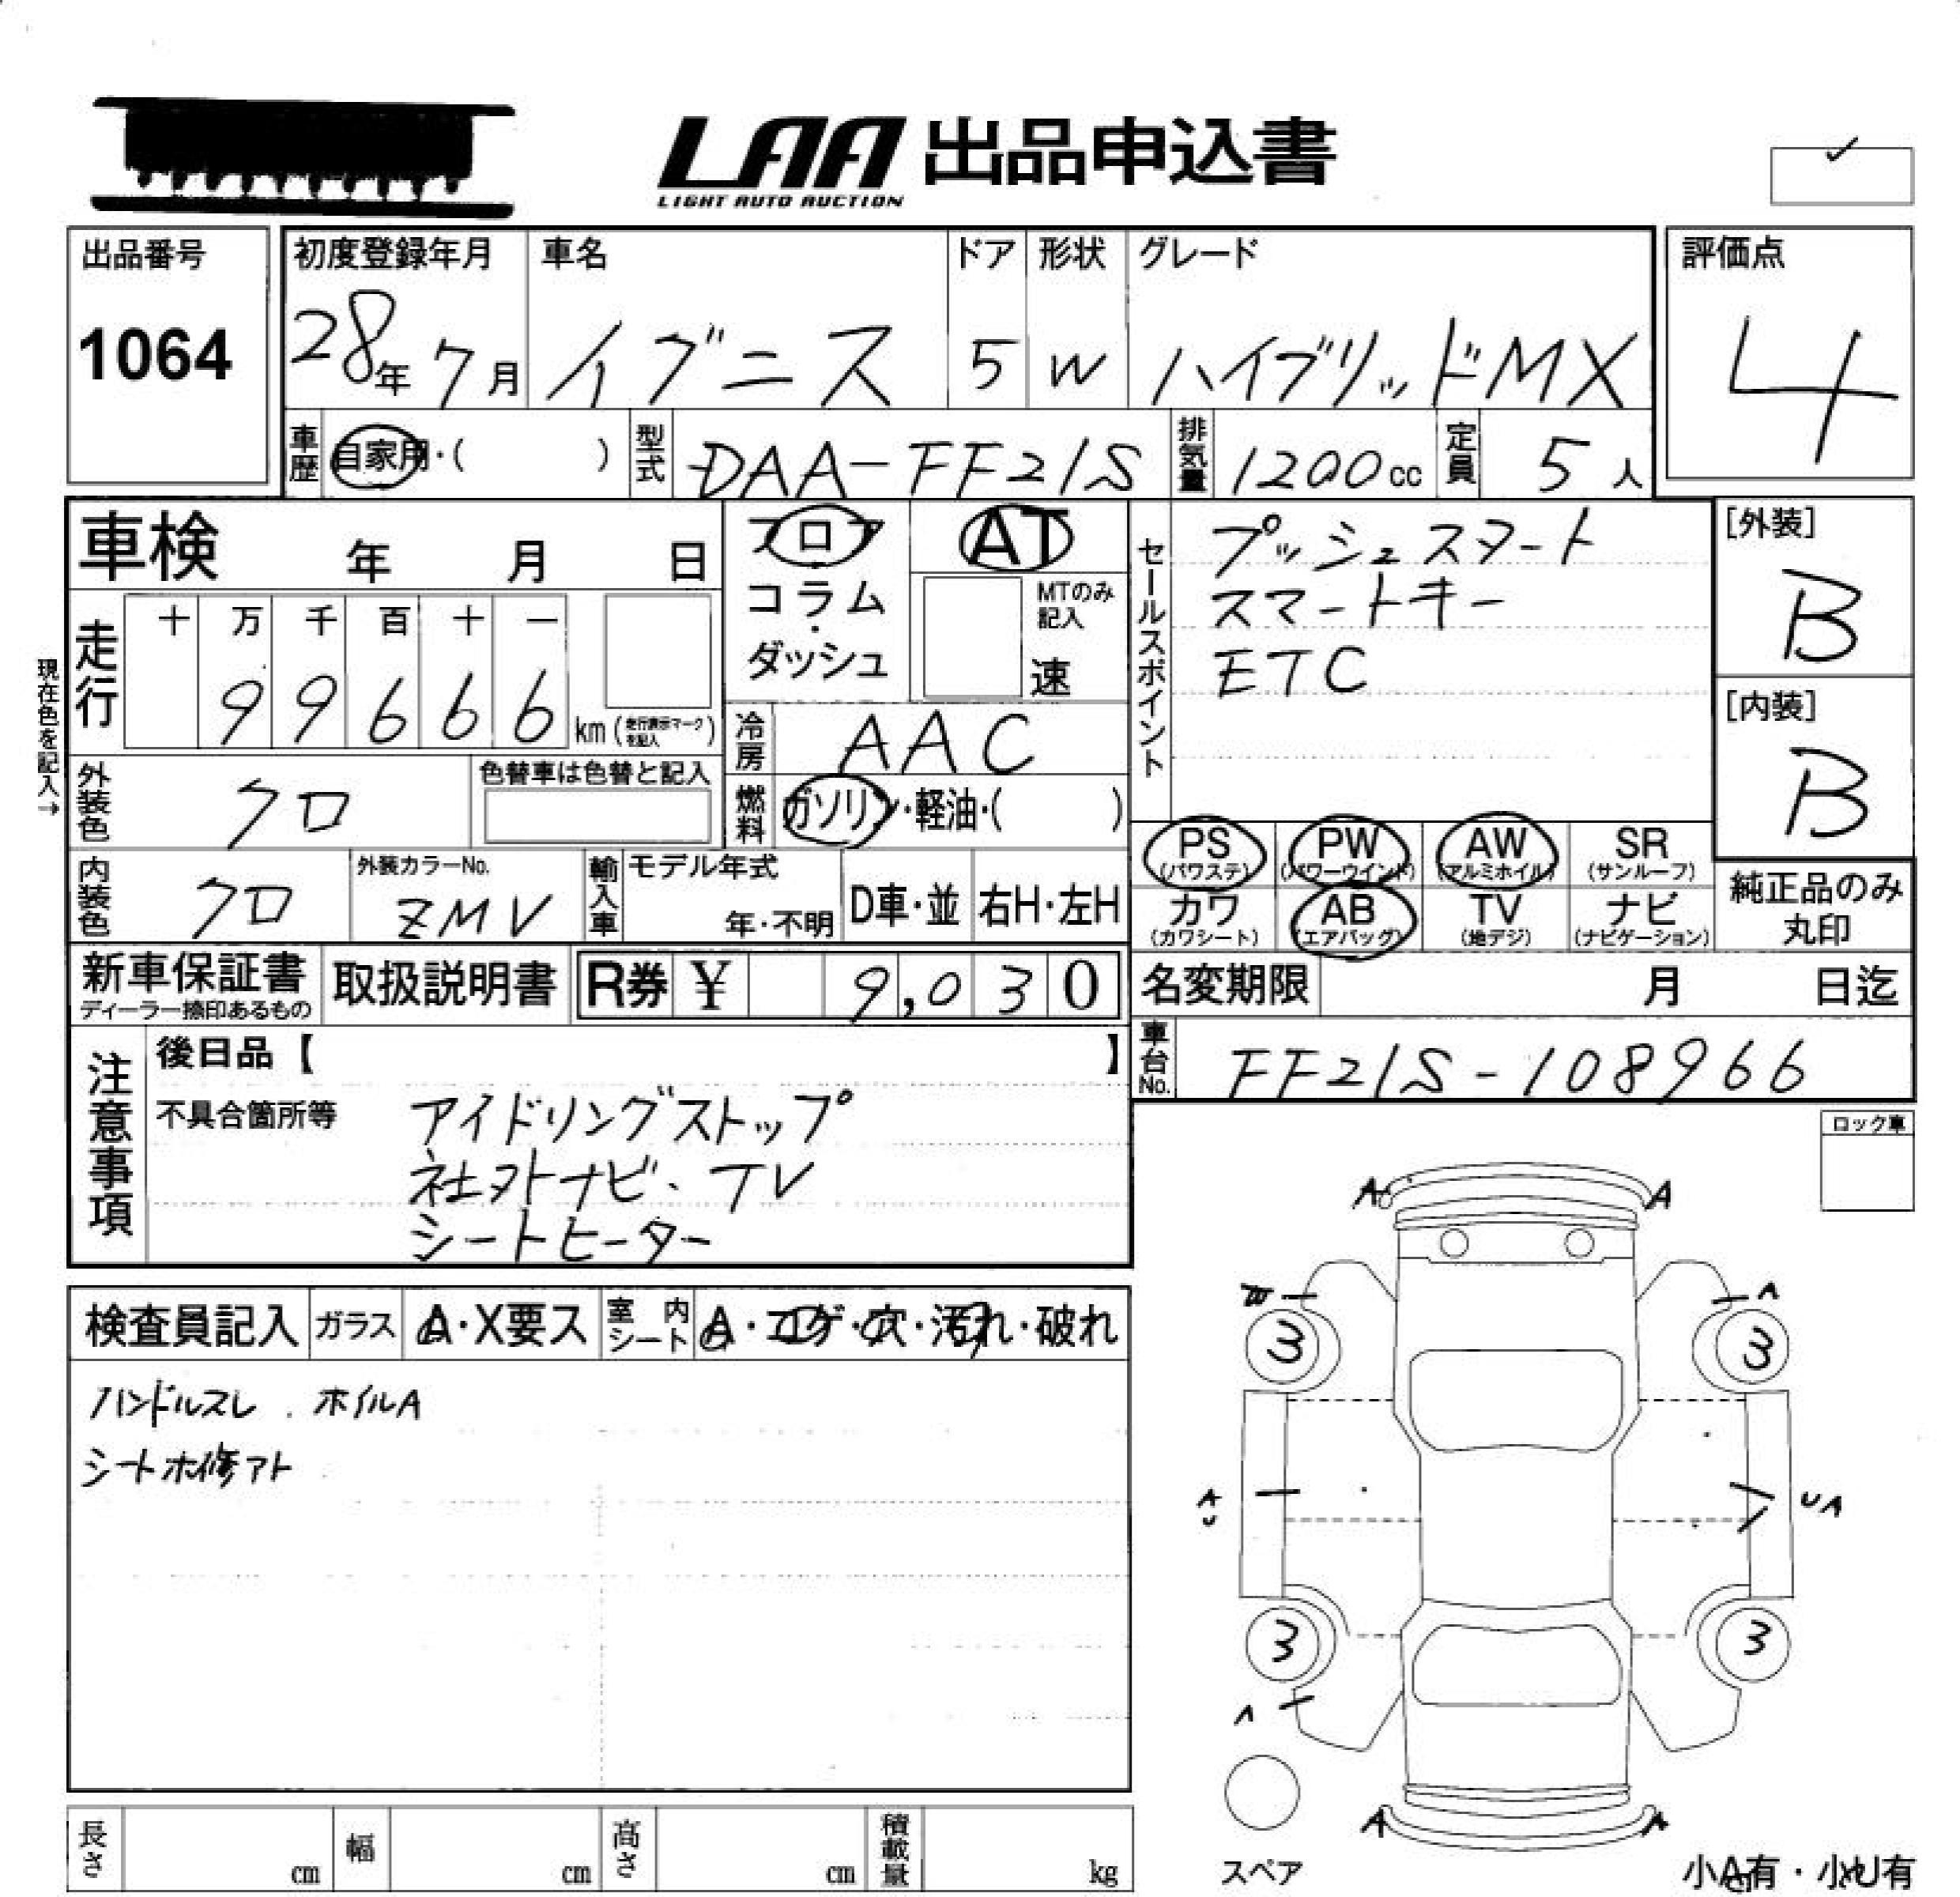 LAA 出品申込書
LIGHT AUTO AUCTION
出品番号
1064
初度登録年月
28年 7月
車名
イグニス
ドア
5
形状
W
グレード
ハイブリッドMX
評価点
4
車歴 自家用・( )
型式 DAA-FF21S
排気量 1200cc
定員 5人
車検 年 月 日
現在色を記入→
走行 十 万 千 百 十 一
9 9 6 6 6 km (走行表示マークを記入)
フロア・コラム・ダッシュ
AT
MTのみ記入
速
冷房 AAC
燃料 ガソリン・軽油・( )
セールスポイント
プッシュスタート
スマートキー
ETC
[外装]
B
[内装]
B
外装色 クロ
色替車は色替と記入
内装色 クロ
外装カラーNo.
ZMV
輸入車 モデル年式
年・不明
D車・並
右H・左H
PS (パワステ)
PW (パワーウインド)
AW (アルミホイル)
SR (サンルーフ)
カワ (カワシート)
AB (エアバッグ)
TV (地デジ)
ナビ (ナビゲーション)
純正品のみ
丸印
新車保証書
ディーラー捺印あるもの
取扱説明書
R券 ¥ 9,030
名変期限 月 日迄
車台No. FF21S-108966
注意事項
後日品【 】
不具合箇所等 アイドリングストップ
社外ナビ、TV
シートヒーター
ロック車
検査員記入
ガラス A・X要ス
室内シート A・コゲ・穴・汚れ・破れ
ハンドルスレ . ホイルA
シートホ修アト
A
A
W
A
3
3
A
U
UA
3
3
A
A
A
スペア
小A有・小U有
長さ cm
幅 cm
高さ cm
積載量 kg